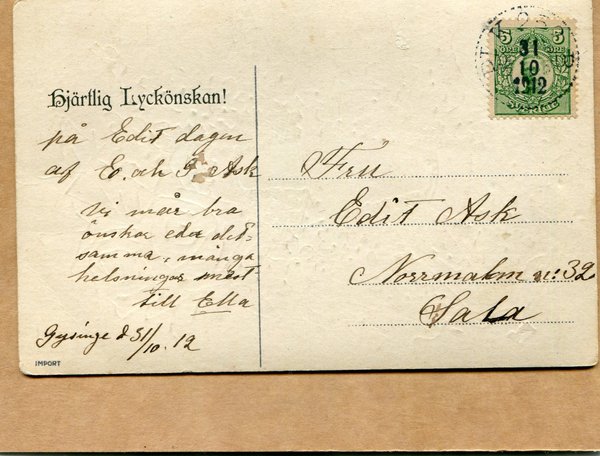 Hjärtlig Lyckönskan!
på Edit dagen
af E. och G. Ask
Vi mår bra
önskar eder det-
samma, många
helsningar mest
till Ella
Gysinge d. 31/10. 12
IMPORT
PLK 230
5 5
ÖRE ÖRE
31
10
1912
SVERIGE
Fru
Edit Ask
Norrmalm n:o 32
Sala